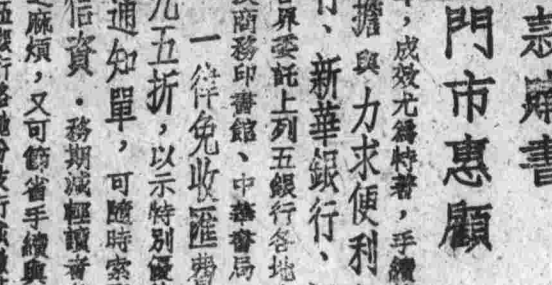 書
門市惠顧
，成效尤爲特著，手續
擔與力求便利
行、新華銀行、
界委託上列五銀行各地
商務印書館、中華書局
一律免收匯費
九五折，以示特別優
通知單，可隨時索
信資．務期減輕讀者
麻煩，又可節省手續與
五銀行各地分支行